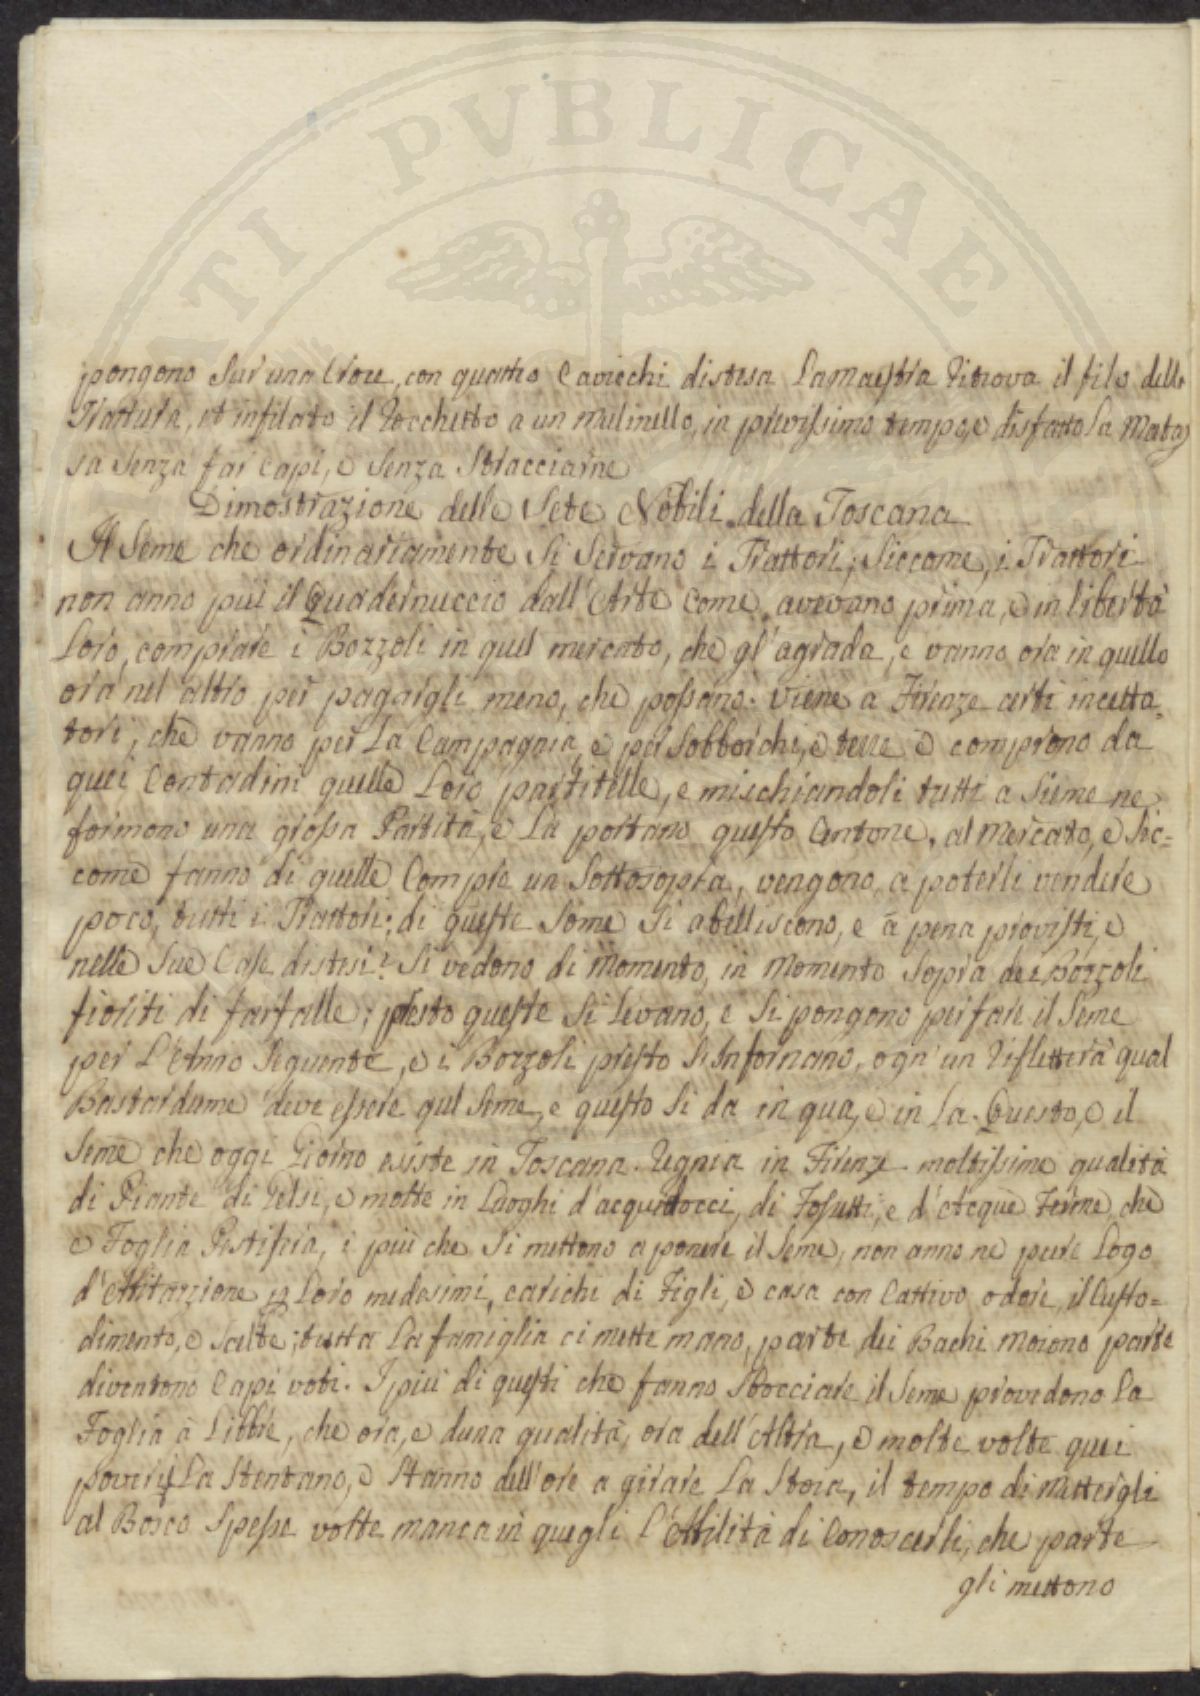 ATI PVBLICAE
pongono sur una Croce, con quattro Cavicchi distesa La Maestra Ritrova il filo della
Trattura, et infilato il Rocchetto a un Mulinello, in previssimo tempo, e disfatto La Matas
sa senza far Capi, e senza Stracciarne
Dimostrazione delle Sete Nobili della Toscana
Il Seme che ordinariamente Si Servano i Trattori; Siccome, i Trattori
non anno piui il Quadernuccio dall'Arte Come avevano prima, e in libertà
Loro, comprare i Bozzoli in quel mercato, che gl'agrada, e vanno ora in quello
ora nel altro per pagargli meno, che possano: viene a Firenze certi incetta
tori, che vanno per La Campagnia, e per Sobborchi, e terre e comprono da
quei Contadini quelle Loro partitelle, e mischiandoli tutti a Sieme ne
formono una grossa Partita, e La portano questo Centone, al Mercato, e Sic=
come fanno di quelle Compre un Sottosopra, vengono a poterli vendere
poco, tutti i Trattori; di queste Some Si abelliscono, e a pena provisti, e
nelle Sue Case distesi: Si vedono di Momento, in Momento Sopra dei Bozzoli
fioriti di farfalle; presto queste Si Levano, e Si pongono per fare il Seme
per L'Anno Seguente, e i Bozzoli presto S'Infornano, ogn'un Rifletterà qual
Bastardume deve essere qul Seme, e questo Si da in qua, e in La. Questo, e il
Seme che oggi Giorno esiste in Toscana. Regnia in Firenze moltissime qualità
di Piante di Gelsi, e molte in Luoghi d'acquidocci, di Fossetti, e d'Acque Ferme, che
e Foglia Pestifera, i piui che Si mettono a ponere il Seme, non anno ne pure Logo
d'Abitazzione p Loro medesimi, carichi di Figli, e casa con Cattivo odore, il Custo=
dimento, e scelte; tutta La famiglia ci mette mano, parte dei Bachi Moiono parte
diventono Capi voti. I piui di questi che fanno Sbocciare il Seme provedono La
Foglia a Libbre, che ora, e duna qualità, ora dell'Altra, e molte volte quei
poveri La Stentano, e Stanno dell'ore a girare La Stoia, il tempo di Mettergli
al Bosco Spesse volte manca in quegli L'Abilità di Conoscerli, che parte
gli mettono